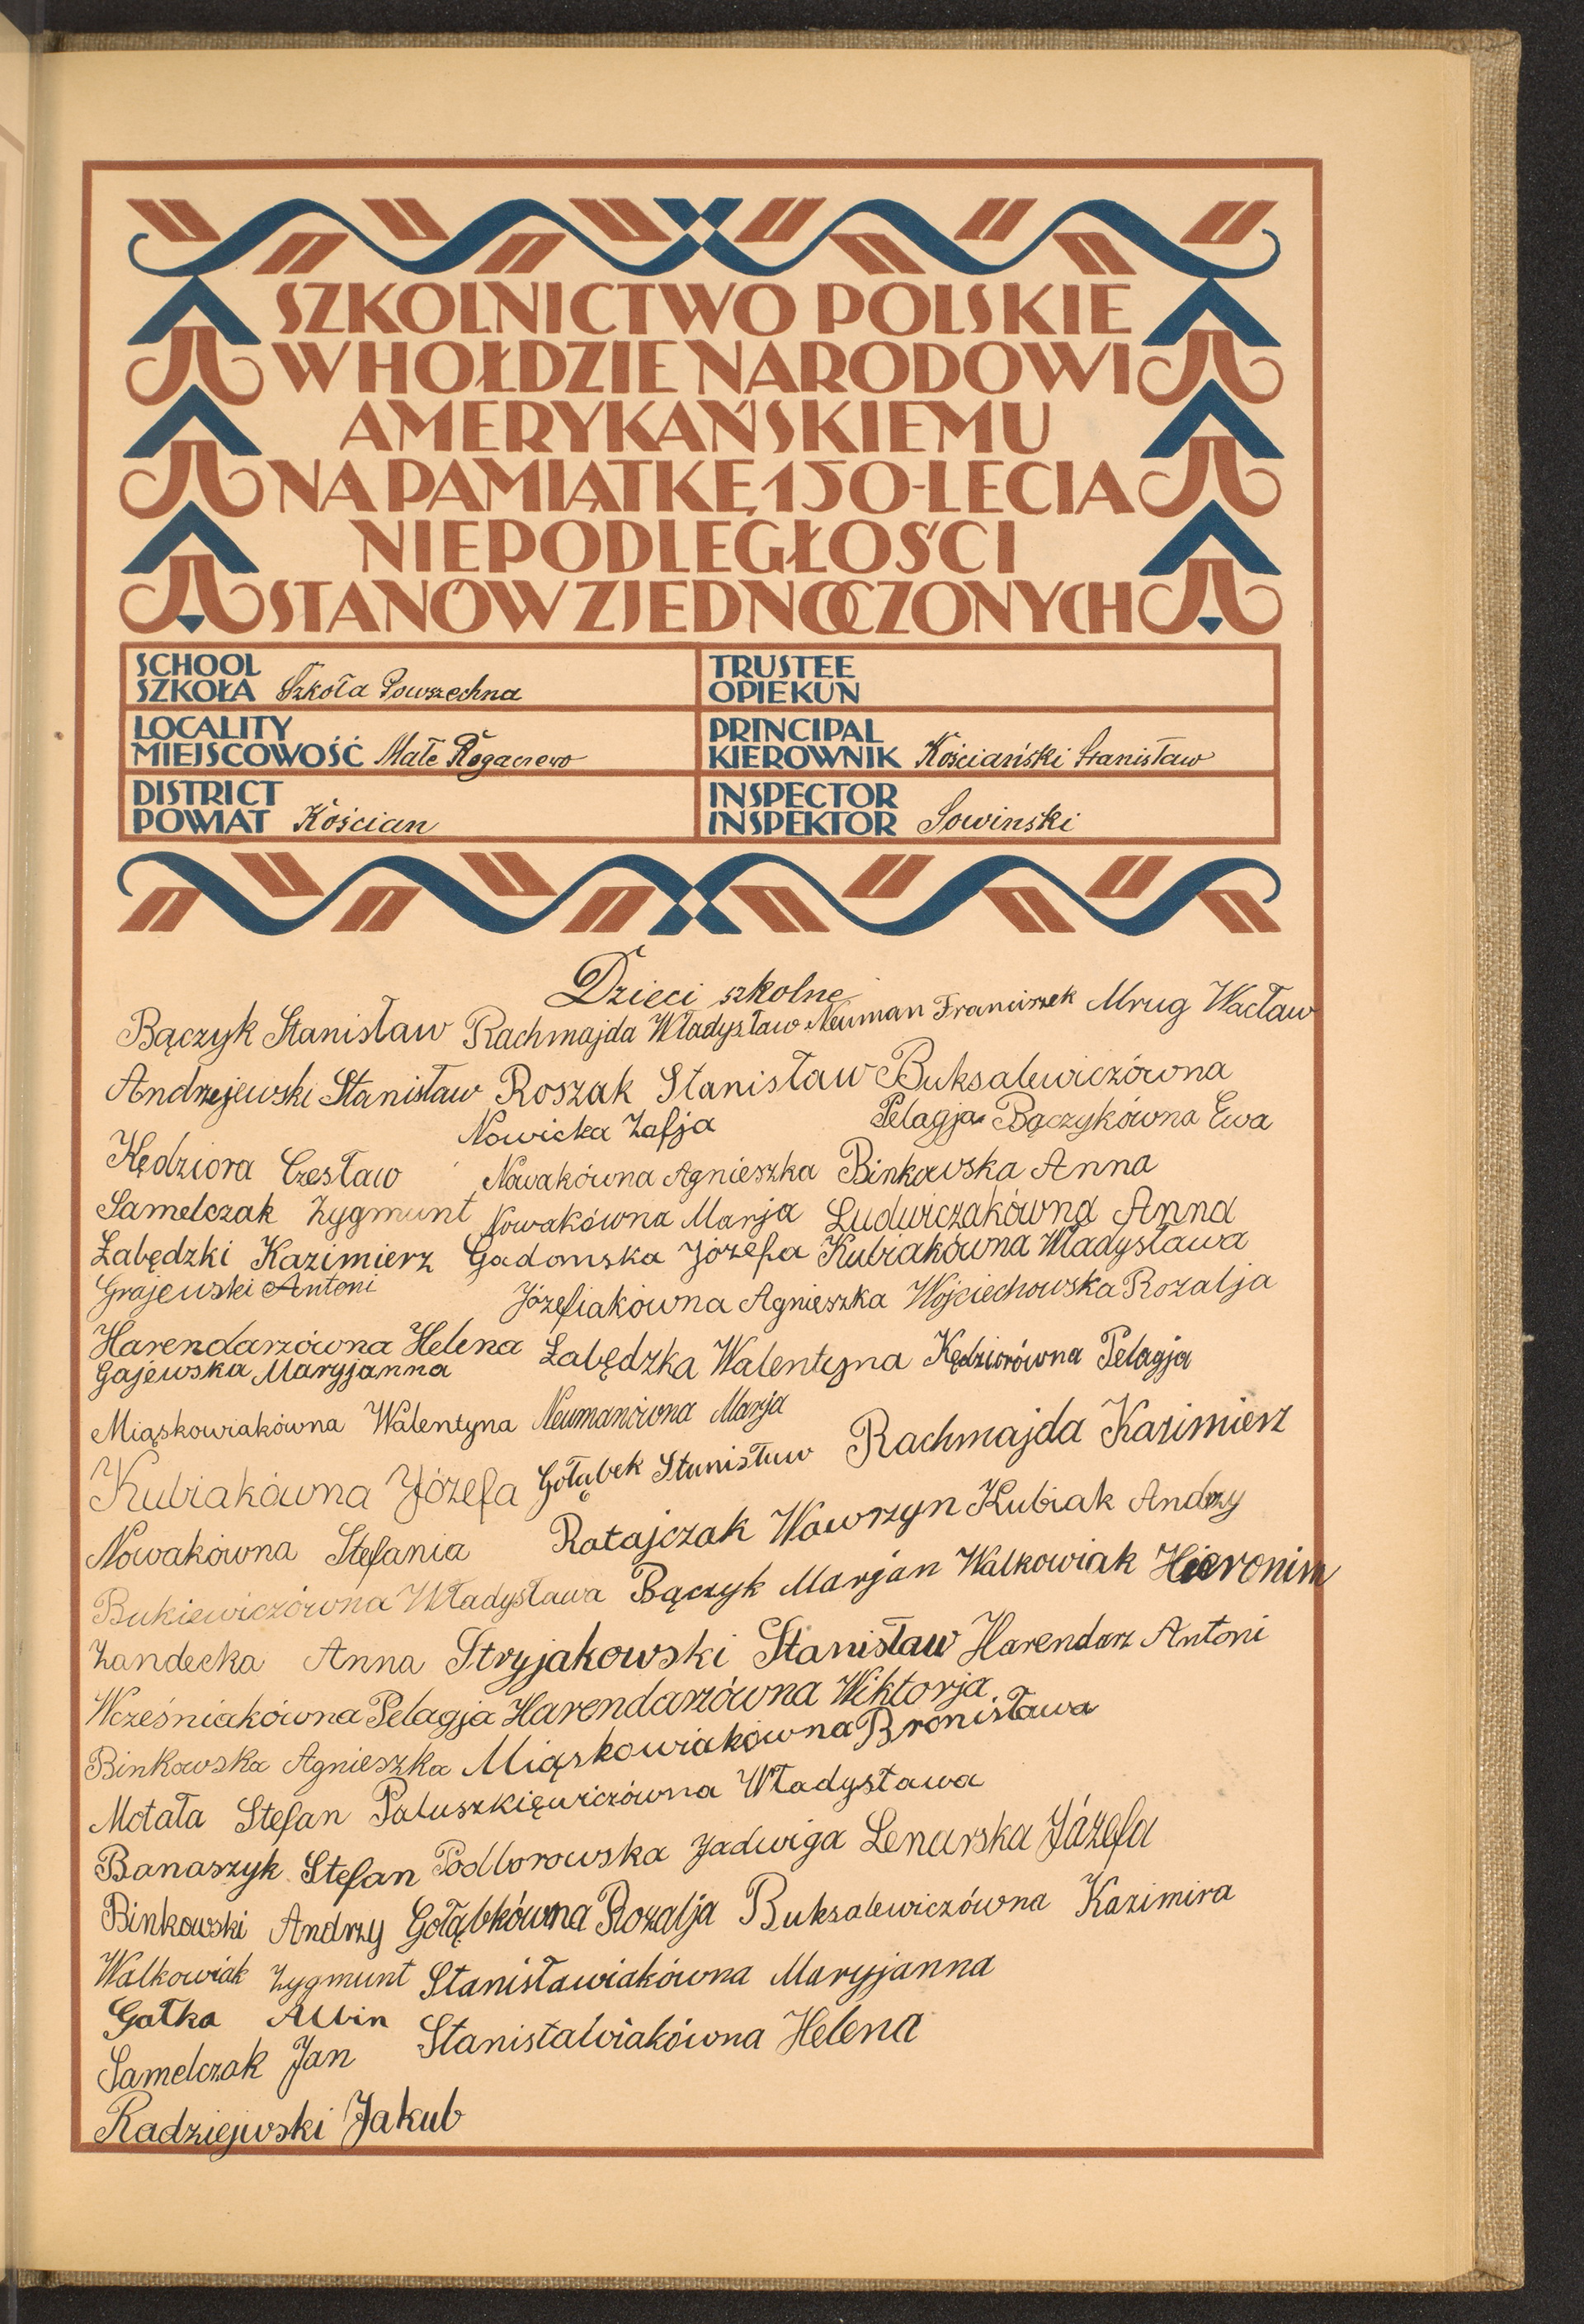 SZKOLNICTWO POLSKIE
W HOŁDZIE NARODOWI
AMERYKAŃSKIEMU
NA PAMIĄTKĘ 150-LECIA
NIEPODLEGŁOŚCI
STANÓW ZJEDNOCZONYCH
SCHOOL
SZKOŁA Szkoła Powszechna
TRUSTEE
OPIEKUN
LOCALITY
MIEJSCOWOŚĆ Małe Rogaczewo
PRINCIPAL
KIEROWNIK Kościański Stanisław
DISTRICT
POWIAT Kościan
INSPECTOR
INSPEKTOR Sowinski
Dzieci szkolne
Bączyk Stanisław Rachmajda Władysław Neuman Franciszek Mrug Wacław
Andrzejewski Stanisław Roszak Stanisław Buksalewiczówna
Nowicka Zafja Pelagja Bączykówna Ewa
Kędziora Czesław Nowakówna Agnieszka Binkowska Anna
Samelczak Zygmunt Nowakówna Marja Ludwiczakówna Anna
Łabędzki Kazimierz Gadomska Józefa Kubiakówna Władysława
Grajewski Antoni Józefiakówna Agnieszka Wojciechowska Rozalja
Harendarzówna Helena Łabędzka Walentyna Kędziorówna Pelagja
Gajewska Maryjanna
Miąskowiakówna Walentyna Neumanówna Marja
Kubiakówna Józefa Gołąbek Stanisław Rachmajda Kazimierz
Nowakówna Stefania Ratajczak Wawrzyn Kubiak Andrzy
Bukiewiczówna Władysława Bączyk Marjan Walkowiak Hieronim
Żandecka Anna Stryjakowski Stanisław Harendarz Antoni
Wcześniakówna Pelagja Harendarzówna Wiktorja
Binkowska Agnieszka Miąskowiakówna Bronisława
Motała Stefan Paluszkięwiczówna Władysława
Banaszyk Stefan Podborowska Jadwiga Lenarska Józefa
Binkowski Andrzy Gołąbkówna Rozalja Buksalewiczówna Kazimira
Walkowiak Zygmunt Stanisławiakówna Maryjanna
Gałka Albin
Samelczak Jan Stanisławiakówna Helena
Radziejwski Jakub